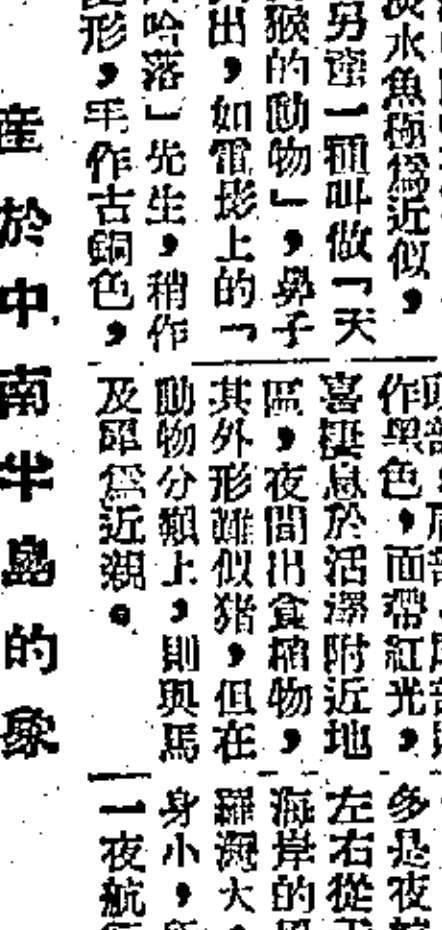 淡水魚極爲近似，
另產一種叫做「天
猴的動物」，鼻子
出，如電影上的「
哈落」先生，稍作
形，毛作古銅色，
作黑色，面帶紅光，
喜棲息於沼澤附近地
區，夜間出食植物，
其外形雖似猪，但在
動物分類上，則與馬
及犀爲近親。
多是夜
左右從
海岸的
羅灣大
身小，
一夜航
產於中南半島的象